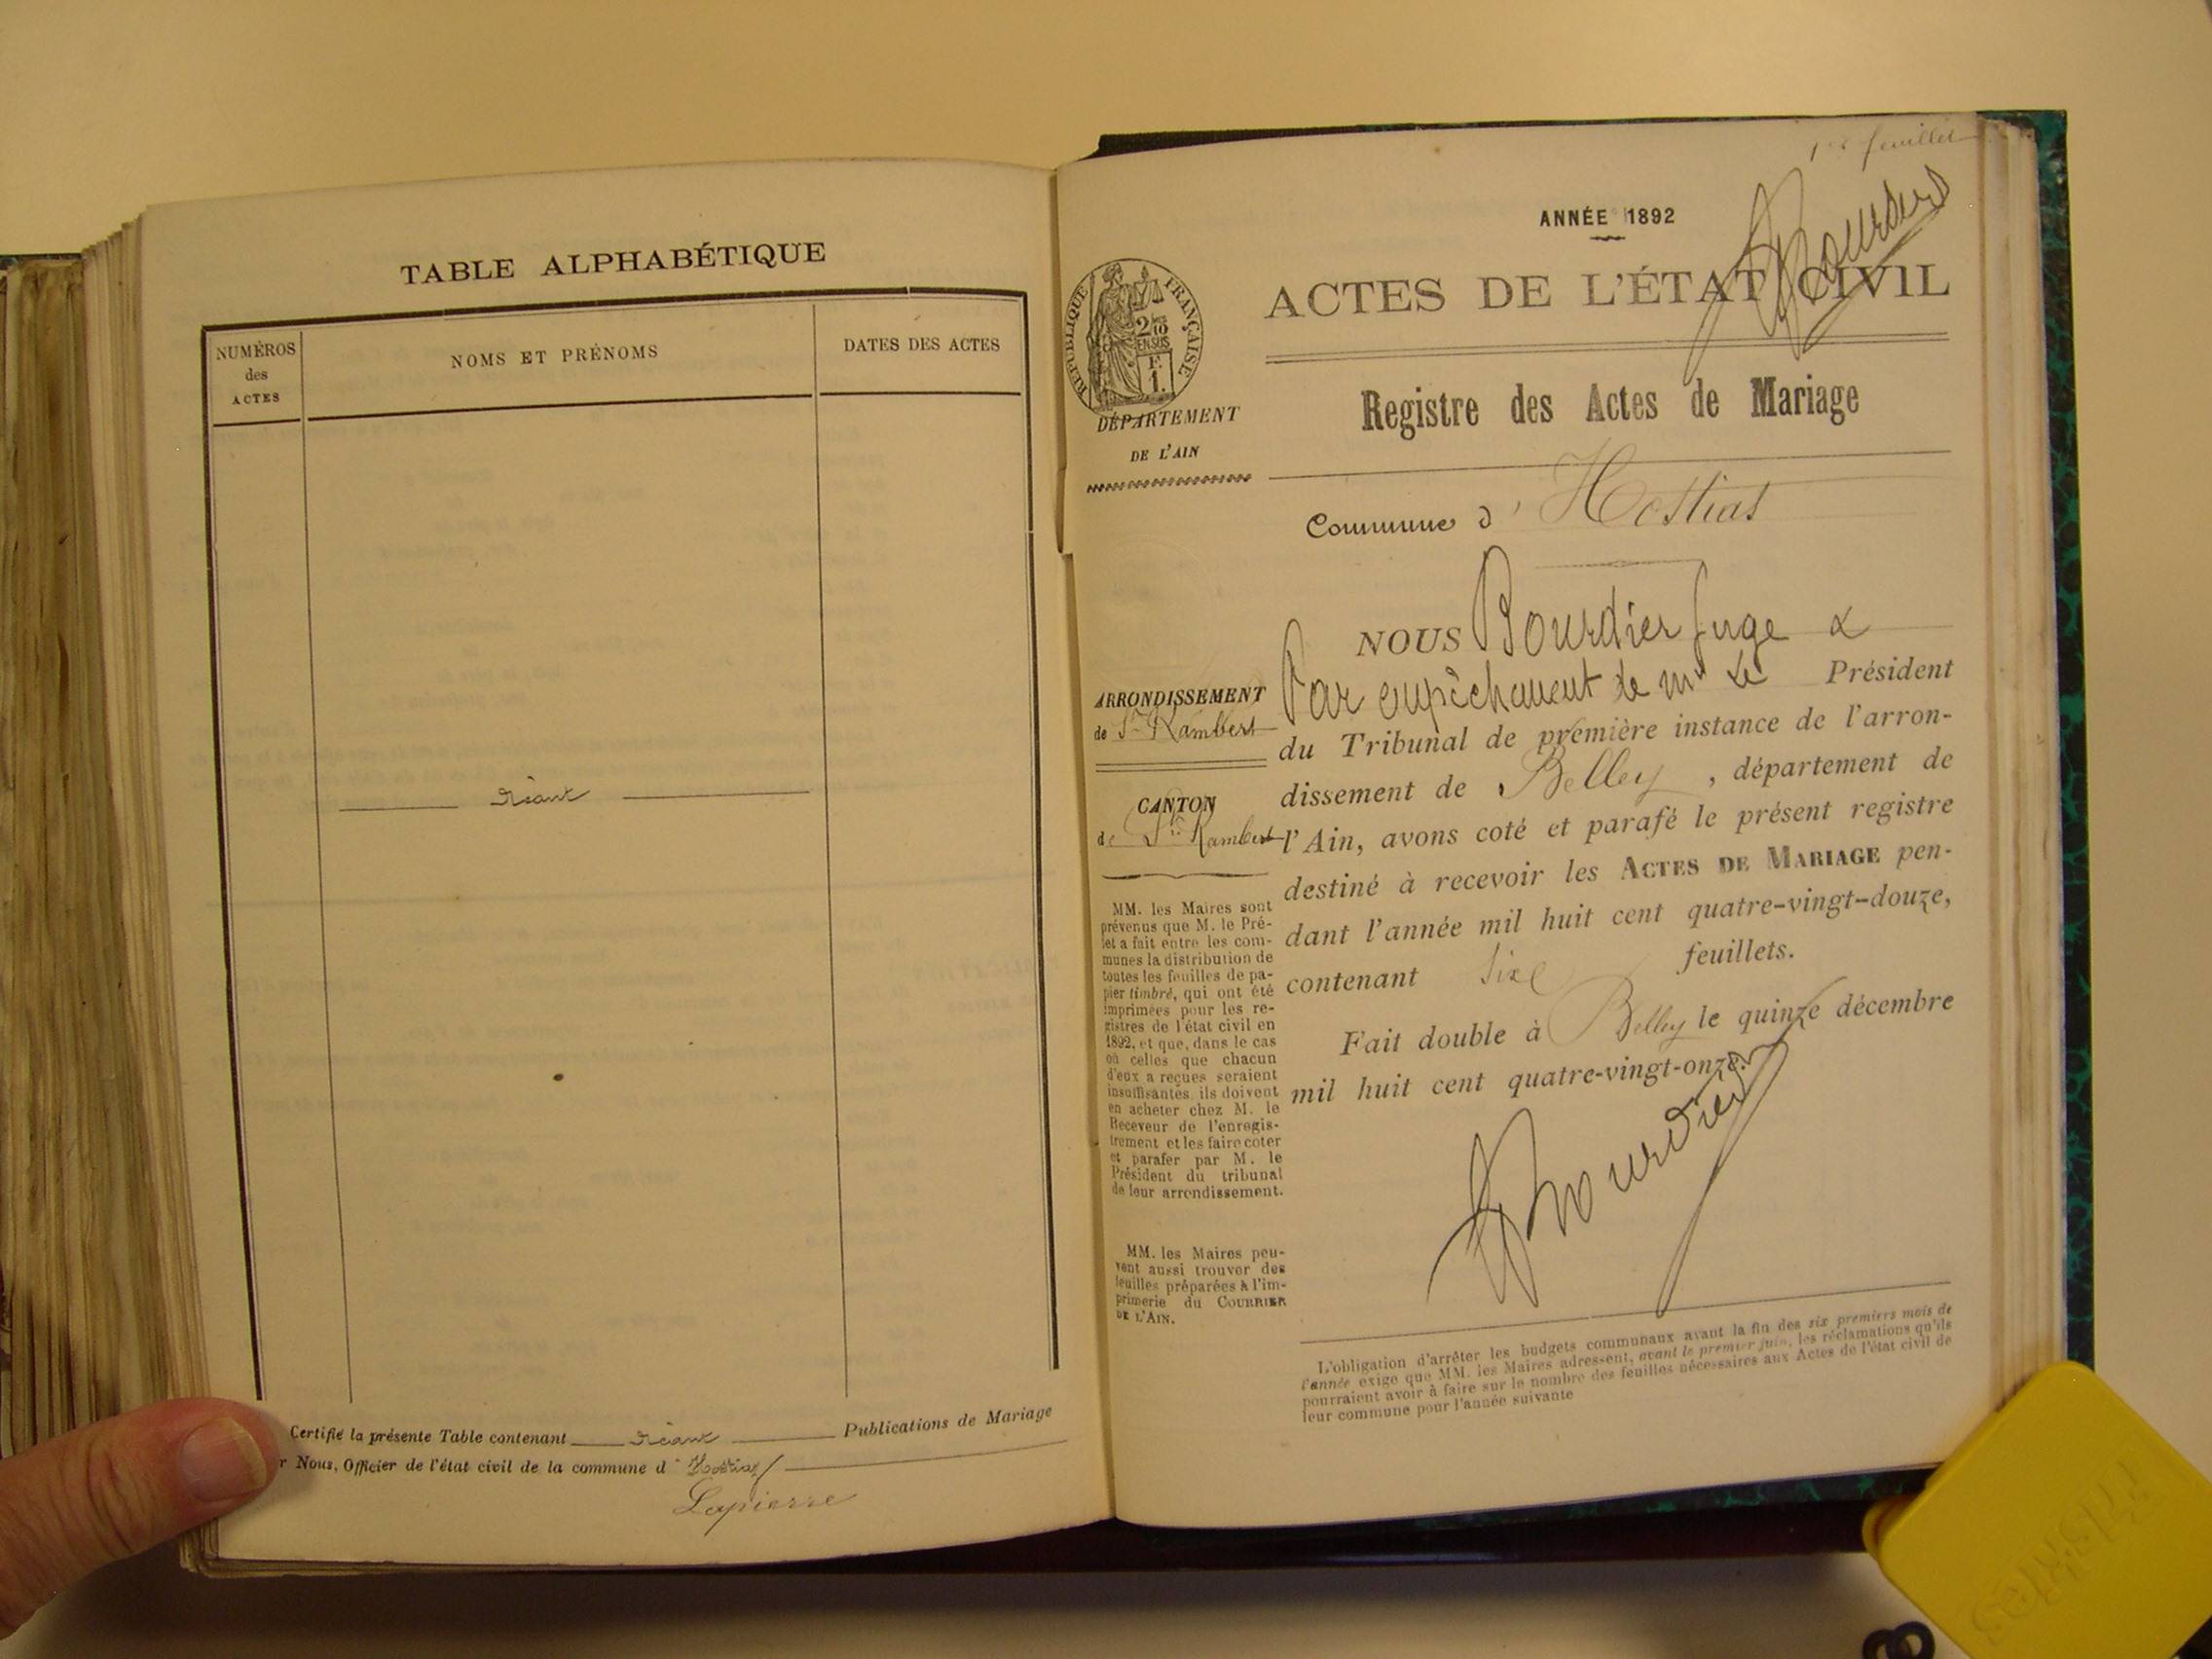 TABLE ALPHABÉTIQUE
NUMÉROS
des
ACTES
NOMS ET PRÉNOMS
DATES DES ACTES
Néant
Certifié la présente Table contenant Néant Publications de Mariage
r Nous, Officier de l'état civil de la commune d'Hostias
Lapierre
1er feuillet
Bourdier
ANNÉE 1892
ACTES DE L'ÉTAT CIVIL
RÉPUBLIQUE FRANÇAISE
2/10
EN SUS
F.
1.
DÉPARTEMENT
DE L'AIN
Registre des Actes de Mariage
Commune d'Hostias
NOUS Bourdier Juge
Par empêchement de Mr Le Président
du Tribunal de première instance de l'arron-
dissement de Belley, département de
l'Ain, avons coté et parafé le présent registre
destiné à recevoir les ACTES DE MARIAGE pen-
dant l'année mil huit cent quatre-vingt-douze,
contenant six feuillets.
Fait double à Belley le quinze décembre
mil huit cent quatre-vingt-onze.
Bourdier
ARRONDISSEMENT
de St Rambert
CANTON
de St Rambert
MM. les Maires sont
prévenus que M. le Pré-
fet a fait entre les com-
munes la distribution de
toutes les feuilles de pa-
pier timbré, qui ont été
imprimées pour les re-
gistres de l'état civil en
1892, et que, dans le cas
où celles que chacun
d'eux a reçues seraient
insuffisantes, ils doivent
en acheter chez M. le
Receveur de l'enregis-
trement et les faire coter
et parafer par M. le
Président du tribunal
de leur arrondissement.
MM. les Maires peu-
vent aussi trouver des
feuilles préparées à l'im-
primerie du COURRIER
DE L'AIN.
L'obligation d'arrêter les budgets communaux avant la fin des six premiers mois de
l'année exige que MM. les Maires adressent, avant le premier juin, les réclamations qu'ils
pourraient avoir à faire sur le nombre des feuilles nécessaires aux Actes de l'état civil de
leur commune pour l'année suivante